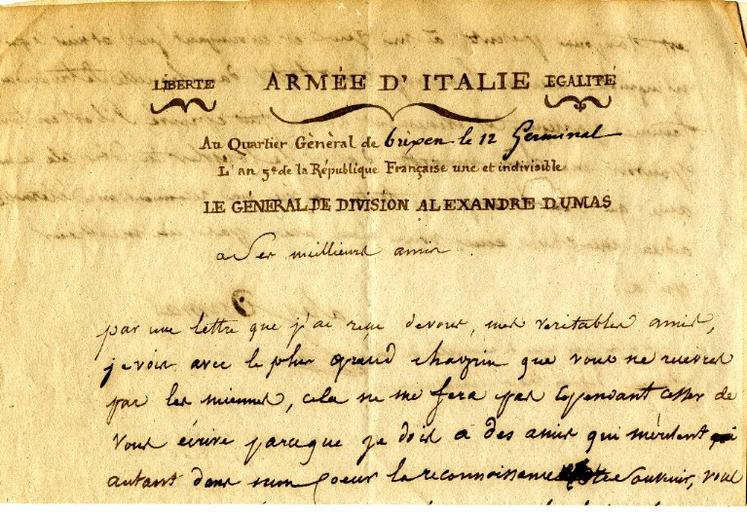 LIBERTÉ ARMÉE D'ITALIE EGALITÉ
Au Quartier Gènèral de brixen le 12 Germinal
L'an 5e de la République Française une et indivisible
LE GÉNERAL DE DIVISION ALEXANDRE DUMAS
a Ses meilleurs amis
par une lettre que j'ai reçue devous, mes veritables amis,
je vois avec le plus grand chagrin que vous ne recevez
pas les miennes, cela ne me fera pas Cependant cesser de
vous écrire parceque je dois a des amis qui méritent
autant dans mon Coeur la reconnoissance Souvenir, vous